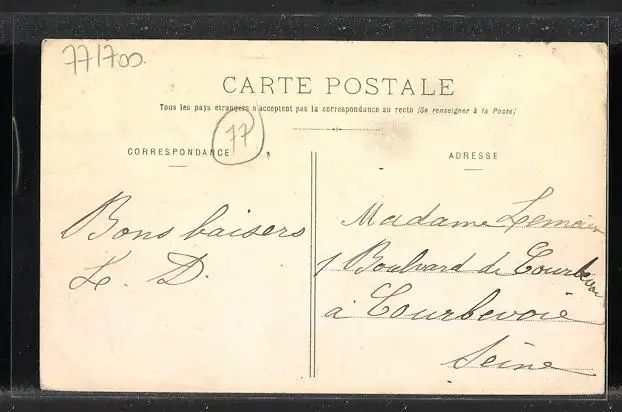 77/700.
CARTE POSTALE
Tous les pays étrangers n'acceptent pas la correspondance au recto (Se renseigner à la Poste)
77
CORRESPONDANCE
ADRESSE
Bons baisers
L. D.
Madame Lemaire
1 Boulvard de Courbevoie
à Courbevoie
Seine